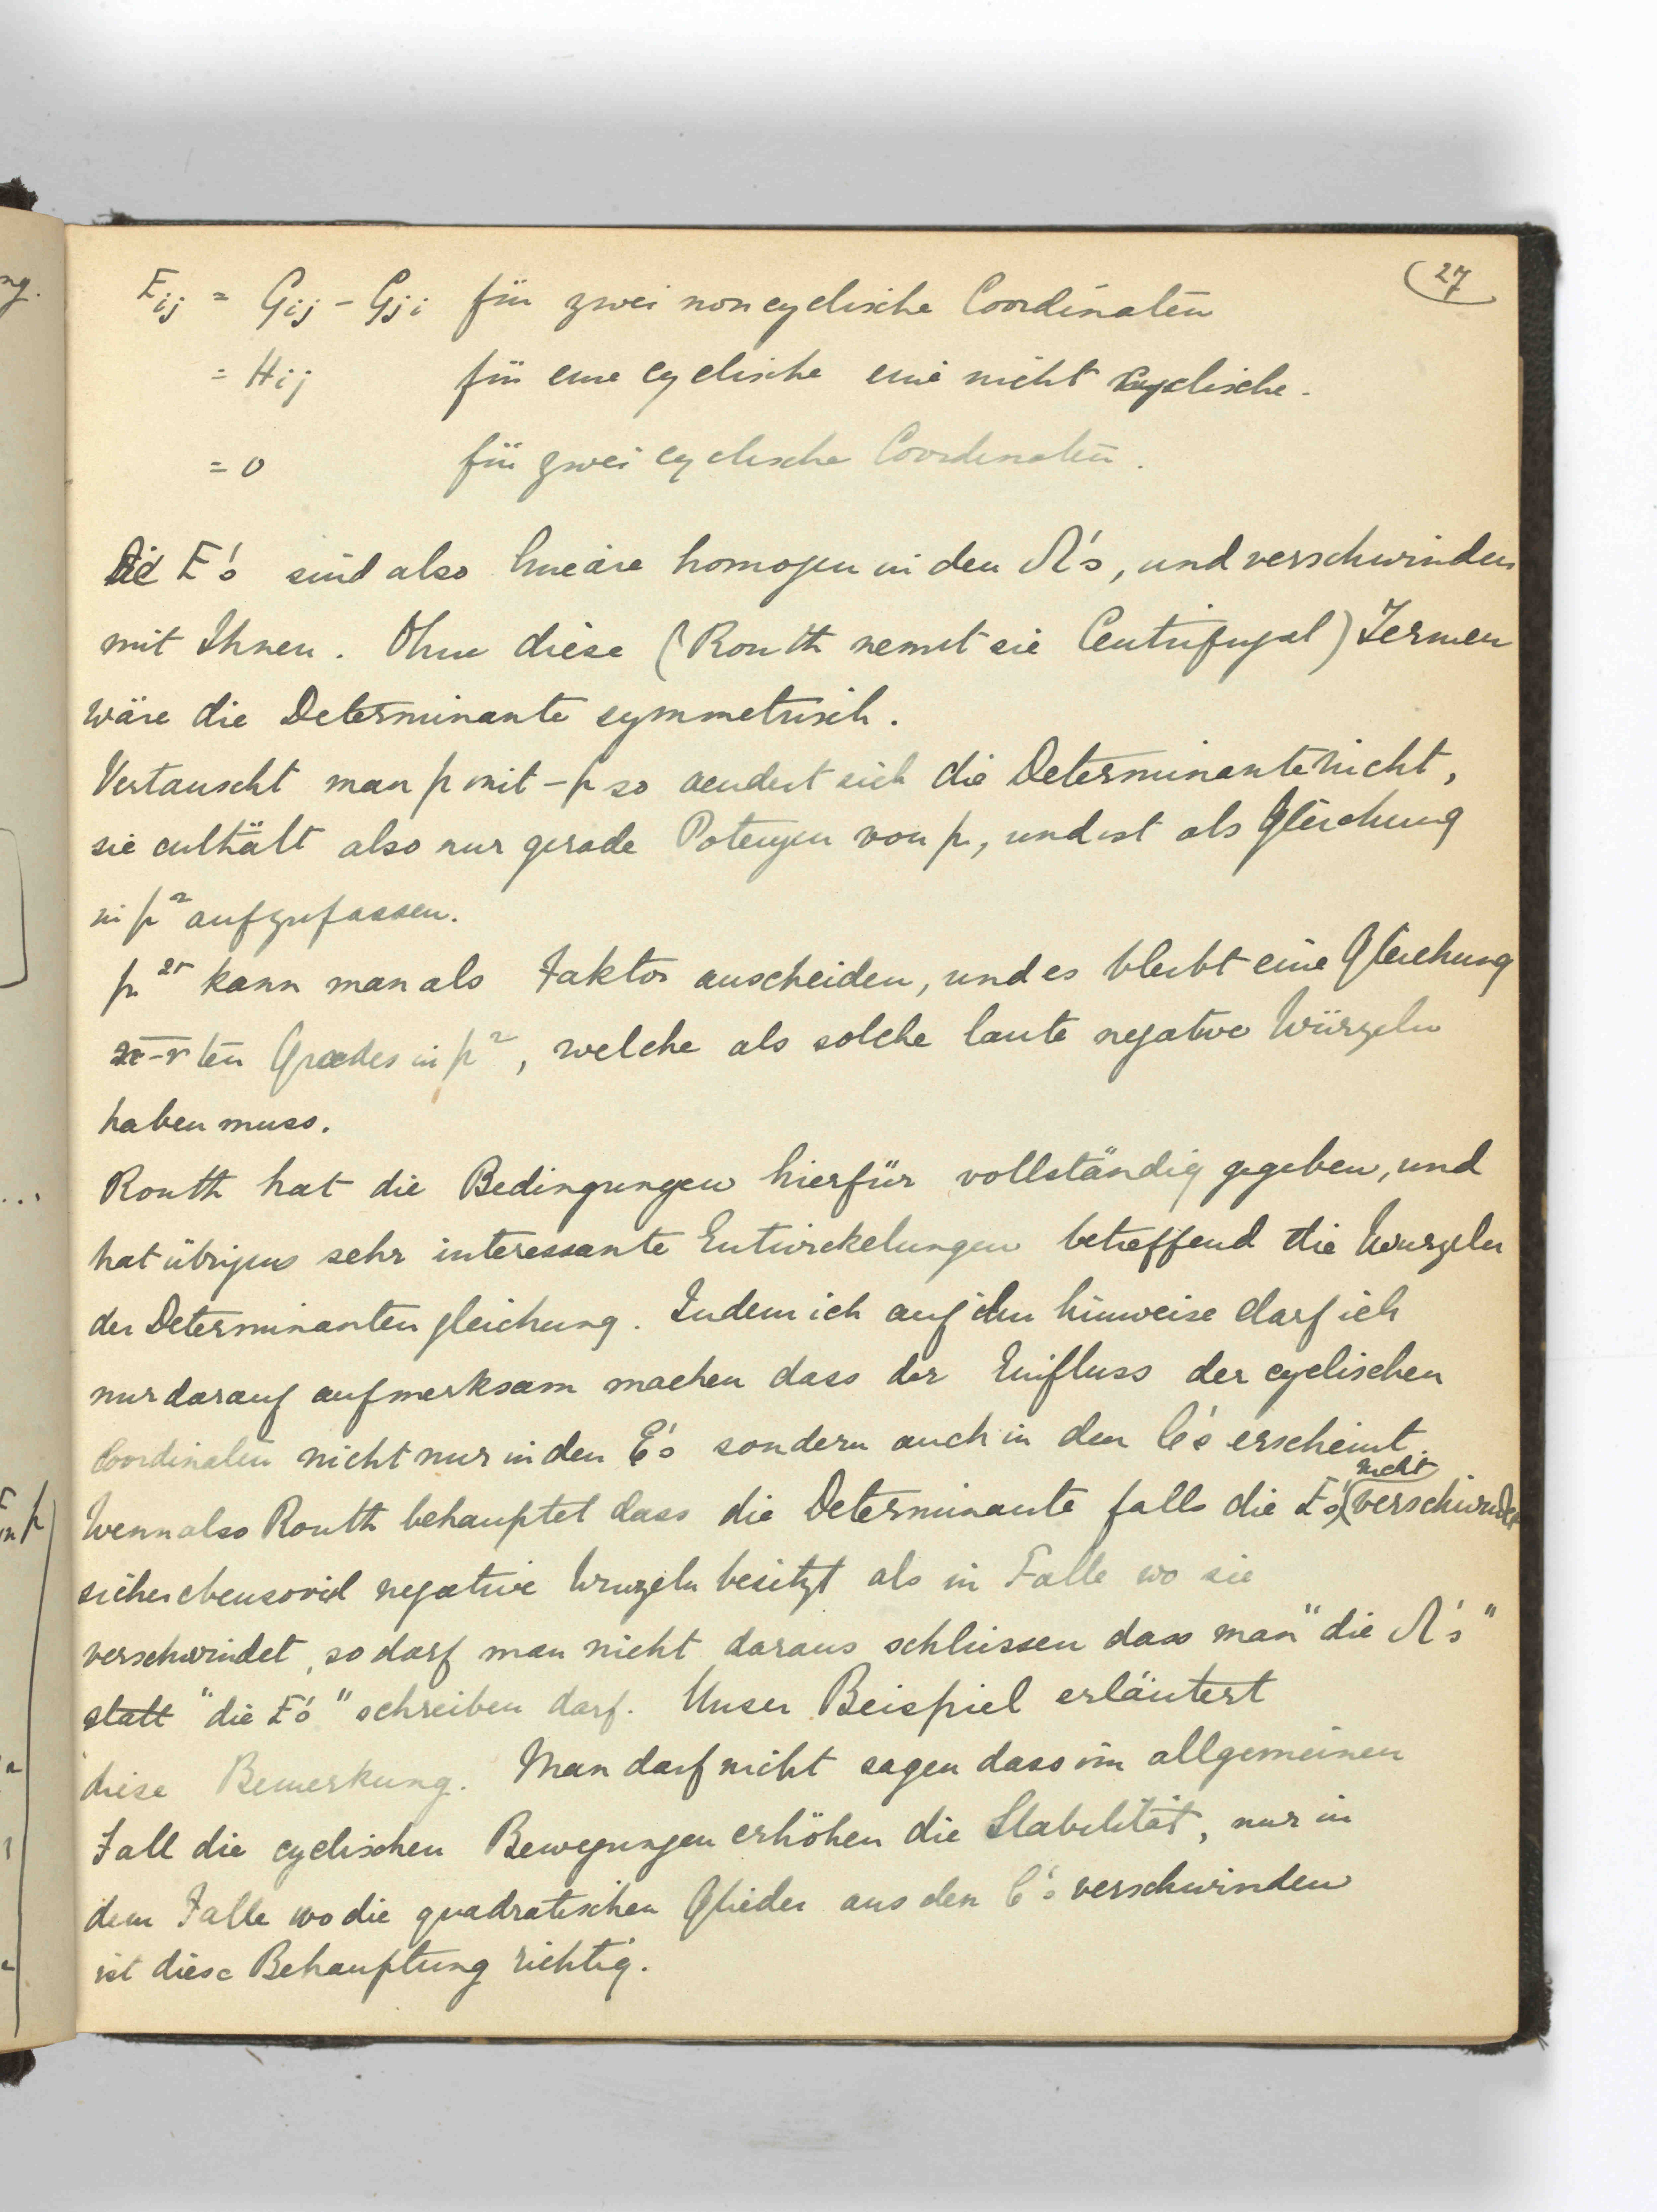 27
E_ij = G_ij - G_ji für zwei noncyclische Coordinaten
= H_ij für eine cyclische eine nicht cyclische.
= 0 für zwei cyclische Coordinaten.
Die E's sind also lineäre homogen in den Λ's, und verschwinden
mit Ihnen. Ohne diese (Routh nennt sie Centrifugal) Termen
wäre die Determinante symmetrisch.
Vertauscht man p mit -p so aendert sich die Determinante nicht,
sie enthält also nur gerade Potenzen von p, und ist als Gleichung
in p² aufzufassen.
p^2r kann man als Faktor auscheiden, und es bleibt eine Gleichung
-r ten Grades in p², welche als solche laute negative Würzeln
haben muss.
Routh hat die Bedingungen hierfür vollständig gegeben, und
hat übrigens sehr interessante Entwickelungen betreffend die Wurzeln
der Determinantengleichung. Indem ich auf ihn hinweise darf ich
nur darauf aufmerksam machen dass der Einfluss der cyclischen
Coordinaten nicht nur in den E's sondern auch in den C's erscheint.
Wenn also Routh behauptet dass die Determinante falls die E's nicht verschwindet
sicher ebensoviel negative Wurzeln besitzt als in Falle wo sie
verschwindet, so darf man nicht daraus schliessen dass man "die Λ's"
statt "die E's" schreiben darf. Unser Beispiel erläutert
diese Bemerkung. Man darf nicht sagen dass im allgemeinen
Fall die cyclischen Bewegungen erhöhen die Stabilität, nur in
dem Falle wo die quadratischen Glieder aus den C's verschwinden
ist diese Behauptung richtig.